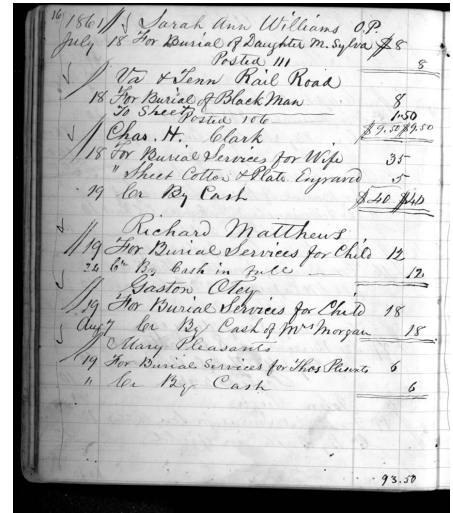 16 1861 Sarah Ann Williams O.P.
July 18 For Burial of Daughter M. Sylva $8
Posted 111 8
Va & Tenn Rail Road
18 For Burial of Black Man 8
To Sheet 1.50
Posted 106 $9.50 $9.50
Chas. H. Clark
18 For Burial Services for Wife 35
" Sheet Cotton & Plate Engraved 5
19 Cr By Cash $40 $40
Richard Matthews
19 For Burial Services for Child 12
24 Cr By Cash in full 12
Gaston
19 For Burial Services for Child 18
Aug 7 Cr By Cash of Mrs Morgan 18
Mary Pleasants
19 For Burial Services for Thos 6
" Cr By Cash 6
93.50